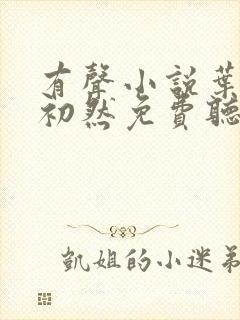 有聲小說葉
初然免費聽
凱姐的小迷弟